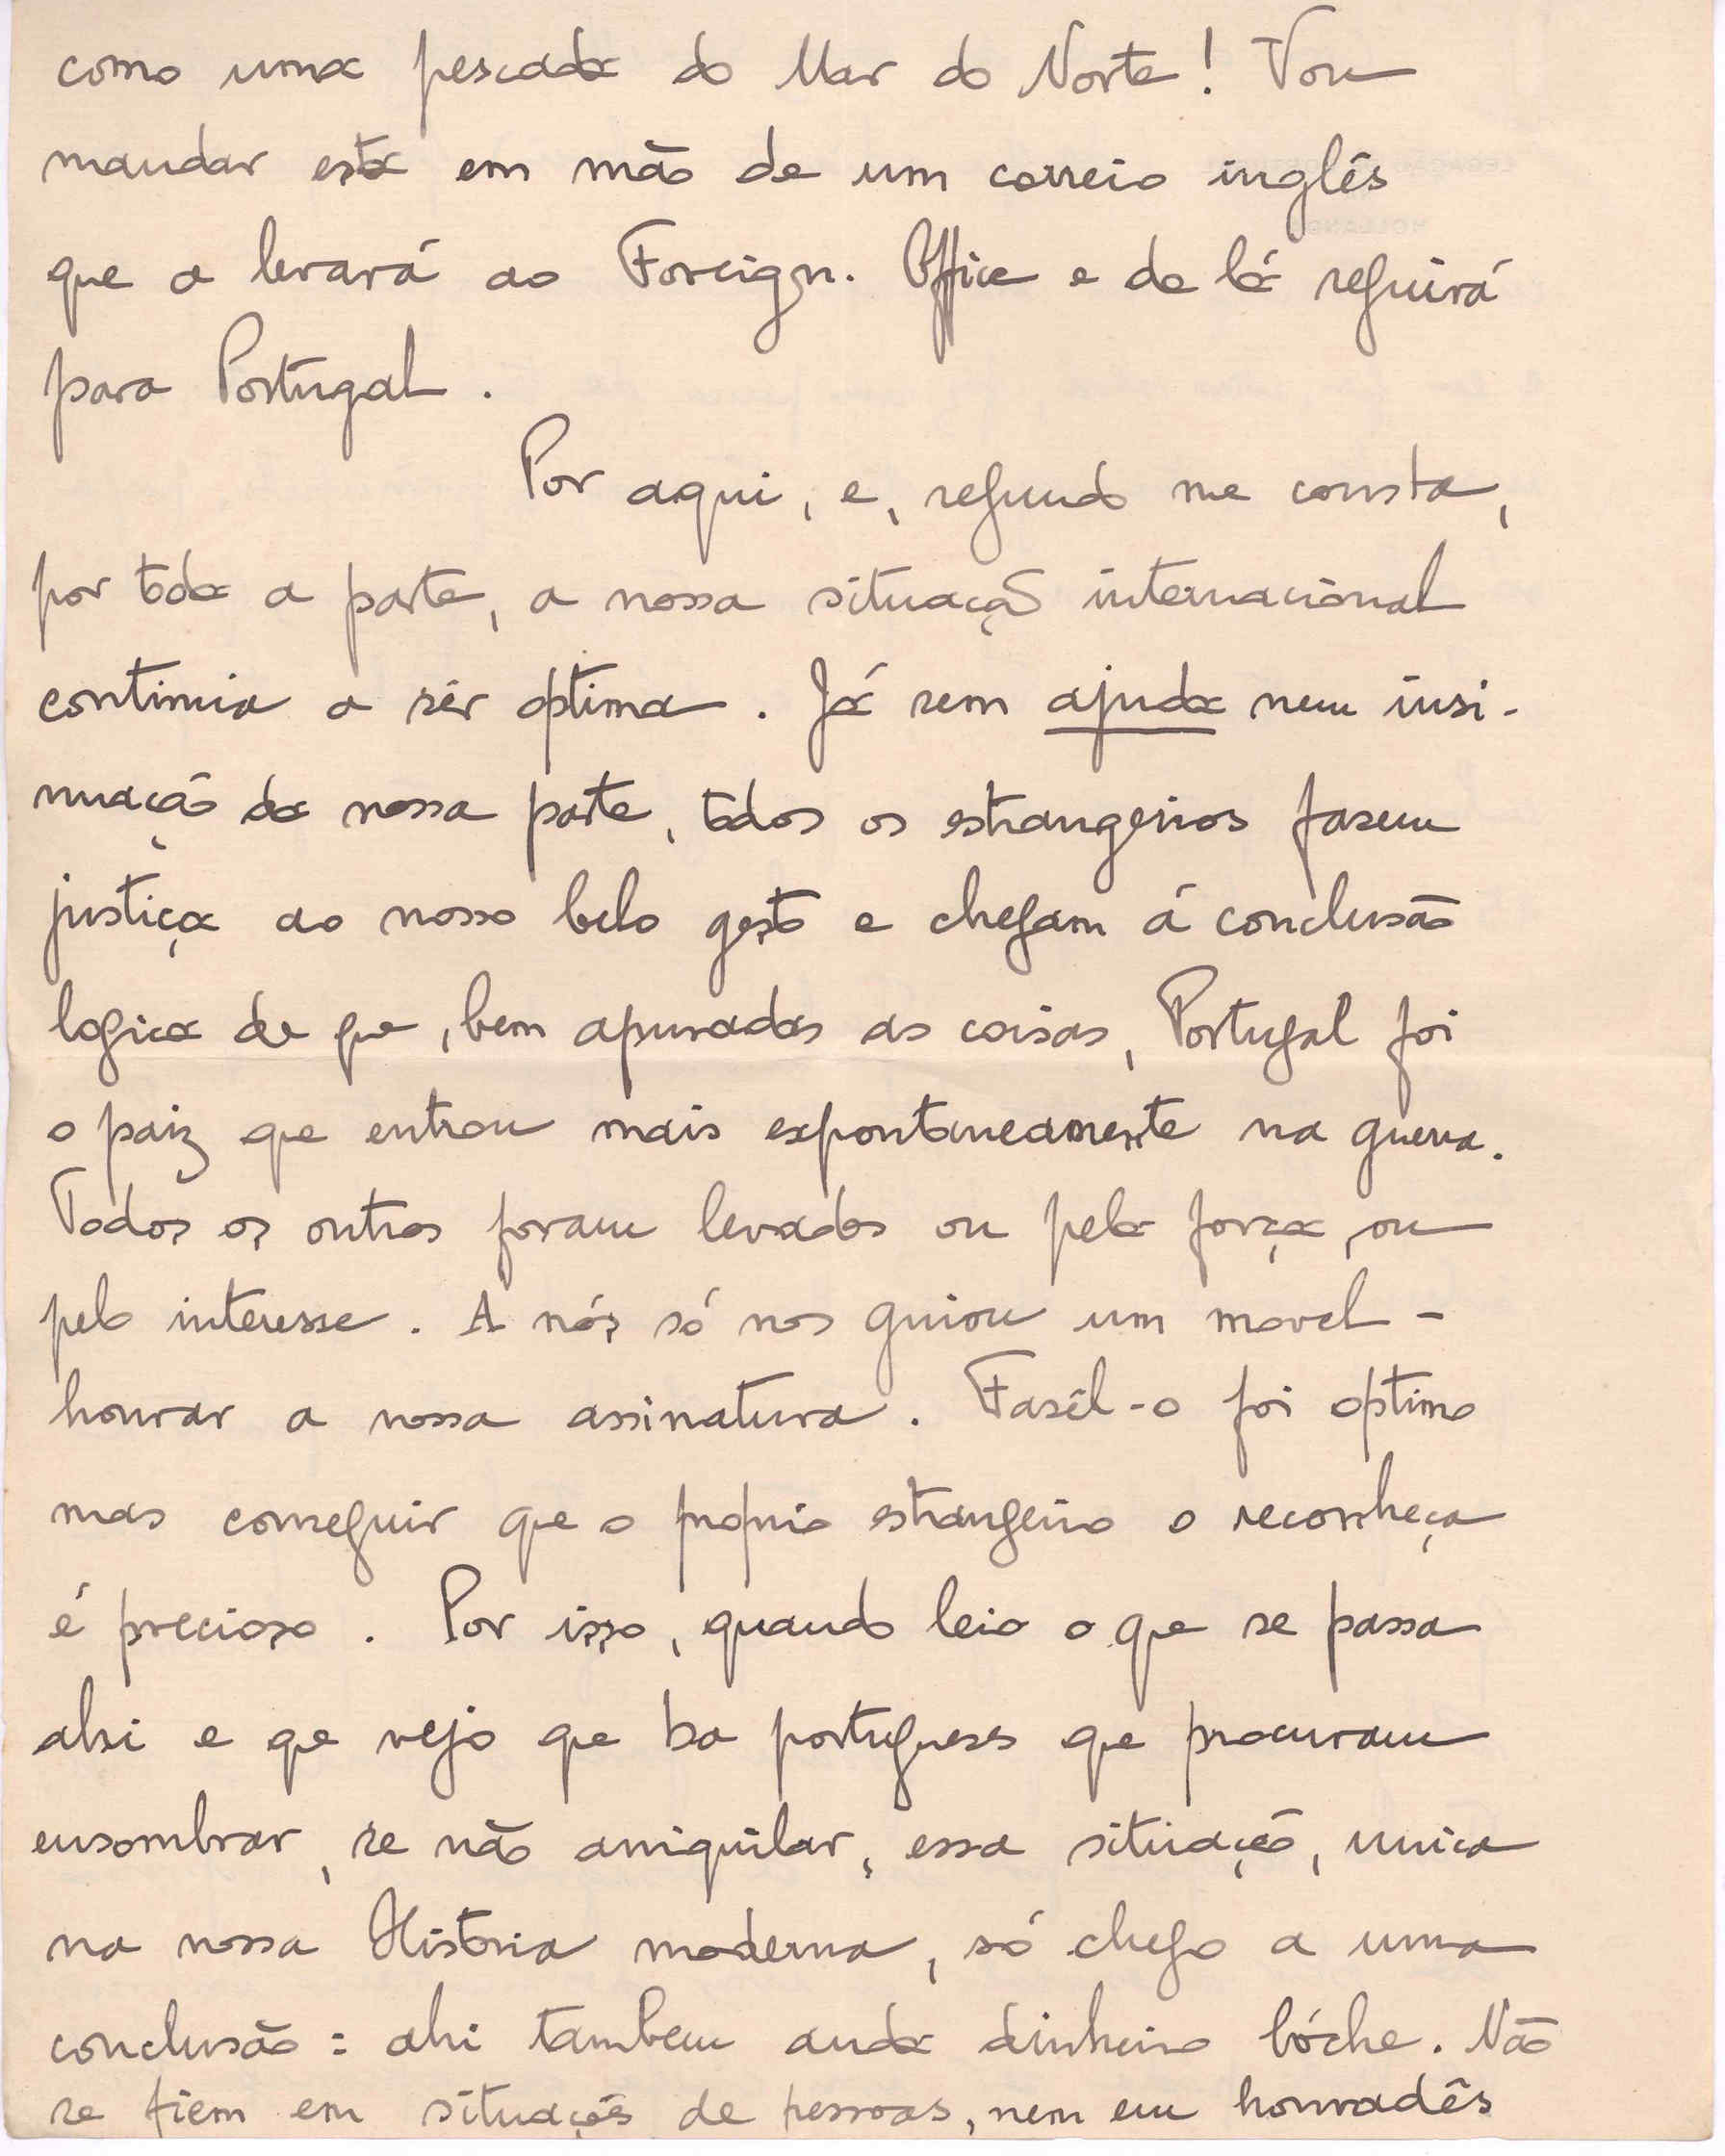 como uma pescada do Mar do Norte! Vou
mandar esta em mão de um correio inglês
que a levará ao Foreign. Office e de lá seguirá
para Portugal.
Por aqui, e, segundo me consta,
por toda a parte, a nossa situação internacional
continúa a sêr optima. Já sem ajuda nem insi-
nuação da nossa parte, todos os estrangeiros fasem
justiça ao nosso belo gesto e chegam á conclusão
logica de que, bem apuradas as coisas, Portugal foi
o paiz que entrou mais expontaneamente na guerra.
Todos os outros foram levados ou pela força, ou
pelo interesse. A nós só nos guiou um movel -
honrar a nossa assinatura. Fasêl-o foi optimo
mas conseguir que o proprio estrangeiro o reconheça
é precioso. Por isso, quando leio o que se passa
ahi e que vejo que ha portugueses que procuram
ensombrar, se não aniquilar, essa situação, unica
na nossa Historia moderna, só chego a uma
conclusão: ahi tambem anda dinheiro bóche. Não
se fiem em situações de pessoas, nem em honradês